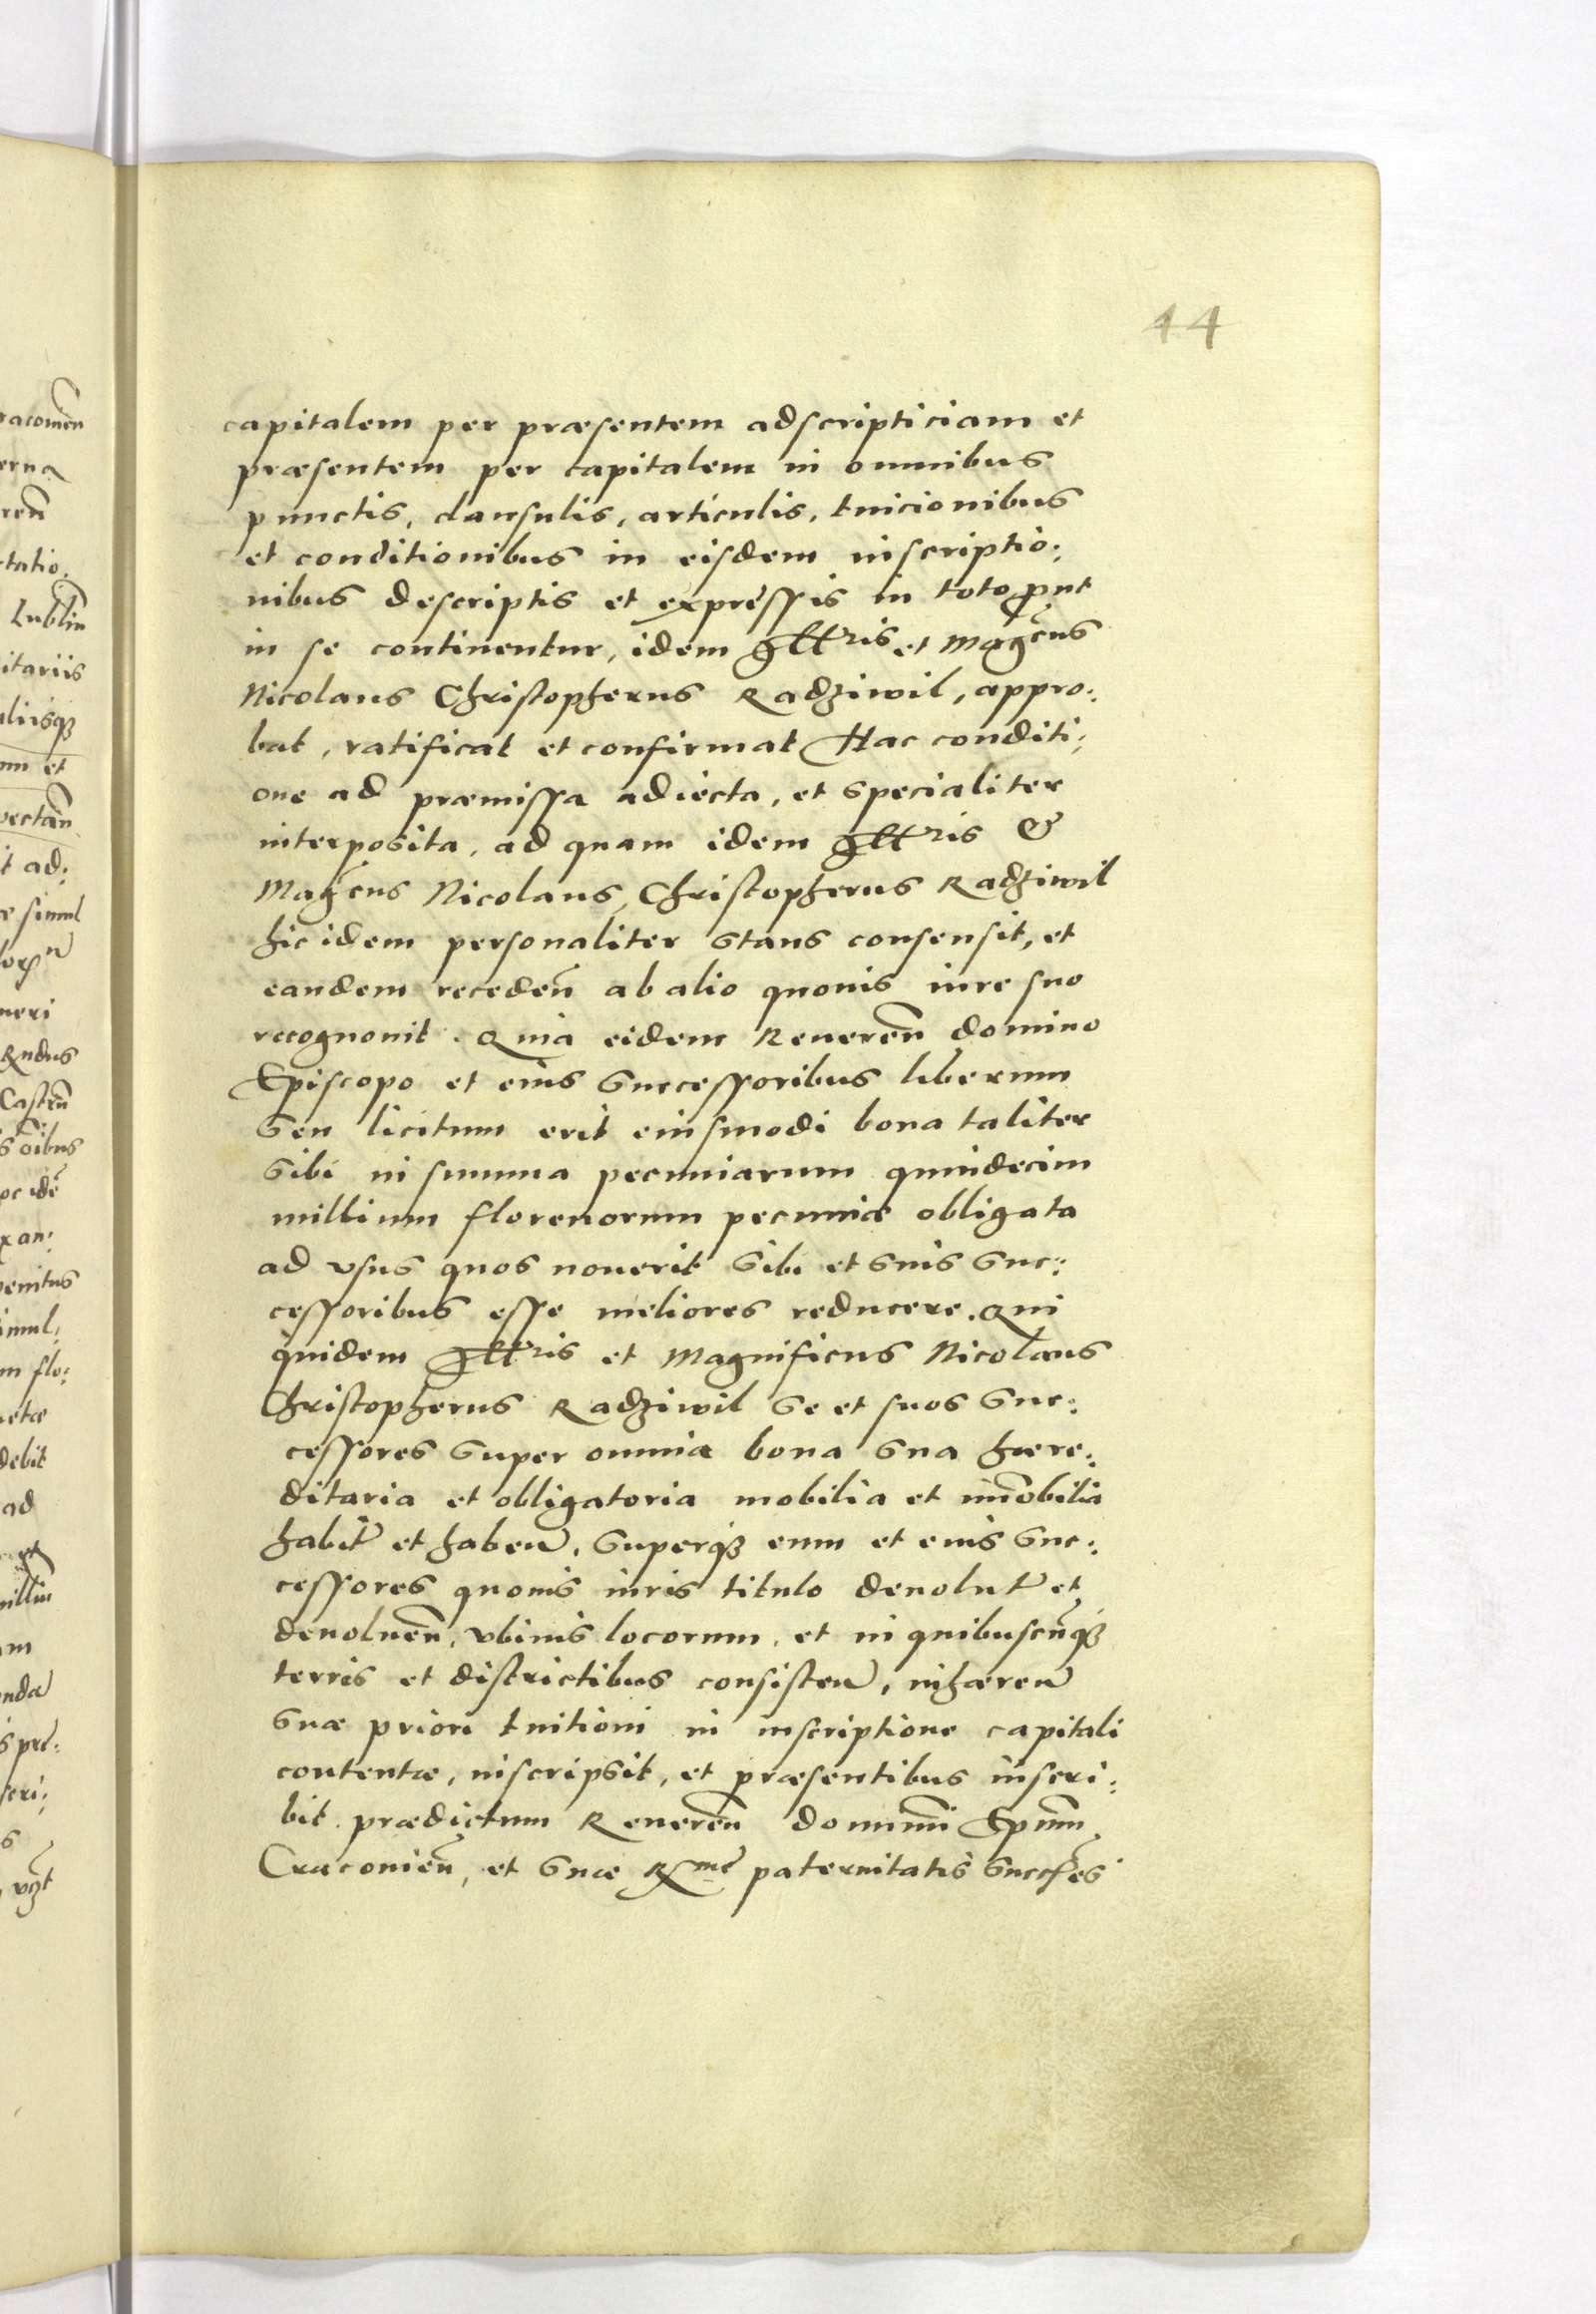 44
capitalem per præsentem adscripticiam et
præsentem per capitalem in omnibus
punctis, clausulis, articulis, tuicionibus
et conditionibus in eisdem inscriptio:
nibus descriptis et expressis in toto ꝓut
in se continentur, idem Illris et Magcus
Nicolaus Christopherus Radziwil, appro:
bat, ratificat et confirmat Hac conditi:
one ad præmissa adiecta, et specialiter
interposita, ad quam idem Illris &
Magcus Nicolaus Christopherus Radziwil
hic idem personaliter stans consensit, et
eandem receden̄ ab alio quouis iure suo
recognouit. Quia eidem Reueren̄ domino
Episcopo et eius successoribus liberum
seu licitum erit eiusmodi bona taliter
sibi in summa pecuniarum quindecim
millium florenorum pecuniæ obligata
ad vsus quos nouerit sibi et suis suc:
cessoribus esse meliores reducere. Qui
quidem Illris et Magnificus Nicolaus
Christopherus Radziwil se et suos suc:
cessores super omnia bona sua hære:
ditaria et obligatoria mobilia et im̄obilia
habit̄ et haben̄, superqꝫ eum et eius suc:
cessores quouis iuris titulo deuolut̄ et
deuoluen̄, vbiuis locorum, et in quibuscun̄qꝫ
terris et districtibus consisten̄, inhæren̄
suæ priori tuitioni in inscriptione capitali
contentæ, inscripsit, et præsentibus inscri:
bit prædictum Reueren̄ dominum̄ Ep̄um
Cracouien̄, et suæ Rmæ paternitatis succes̄es